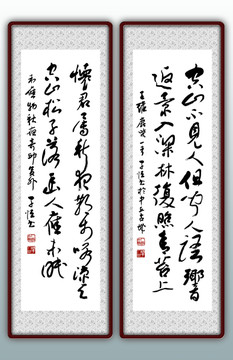 空山不見人但聞人語響
返景入深林復照青苔上
王維鹿柴一首
懷君屬秋夜散步詠涼天
空山松子落幽人應未眠
韋應物秋夜寄邱員外